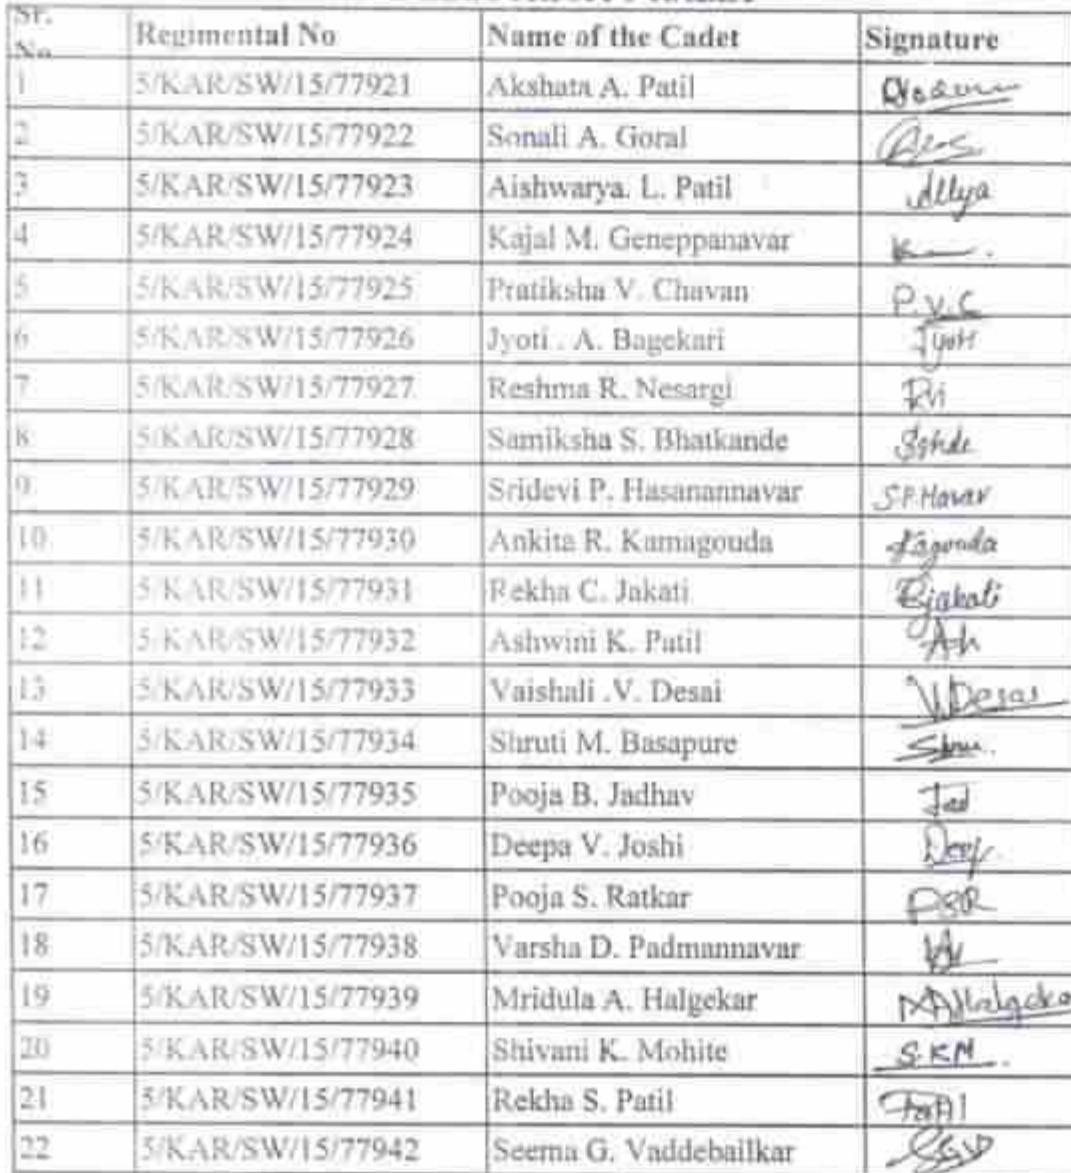 Sr. No Regimental No Name of the Cadet Signature
1 5/KAR/SW/15/77921 Akshata A. Patil
2 5/KAR/SW/15/77922 Sonali A. Goral
3 5/KAR/SW/15/77923 Aishwarya. L. Patil
4 5/KAR/SW/15/77924 Kajal M. Geneppanavar
5 5/KAR/SW/15/77925 Pratiksha V. Chavan P.V.C
6 5/KAR/SW/15/77926 Jyoti . A. Bagekari Jyoti
7 5/KAR/SW/15/77927 Reshma R. Nesargi
8 5/KAR/SW/15/77928 Samiksha S. Bhatkande
9 5/KAR/SW/15/77929 Sridevi P. Hasanannavar S.P.Havar
10 5/KAR/SW/15/77930 Ankita R. Kamagouda
11 5/KAR/SW/15/77931 Rekha C. Jakati Rjakati
12 5/KAR/SW/15/77932 Ashwini K. Patil
13 5/KAR/SW/15/77933 Vaishali .V. Desai VDesai
14 5/KAR/SW/15/77934 Shruti M. Basapure
15 5/KAR/SW/15/77935 Pooja B. Jadhav Jad
16 5/KAR/SW/15/77936 Deepa V. Joshi Deep
17 5/KAR/SW/15/77937 Pooja S. Ratkar PSR
18 5/KAR/SW/15/77938 Varsha D. Padmannavar
19 5/KAR/SW/15/77939 Mridula A. Halgekar
20 5/KAR/SW/15/77940 Shivani K. Mohite S.KM.
21 5/KAR/SW/15/77941 Rekha S. Patil
22 5/KAR/SW/15/77942 Seema G. Vaddebailkar SGV